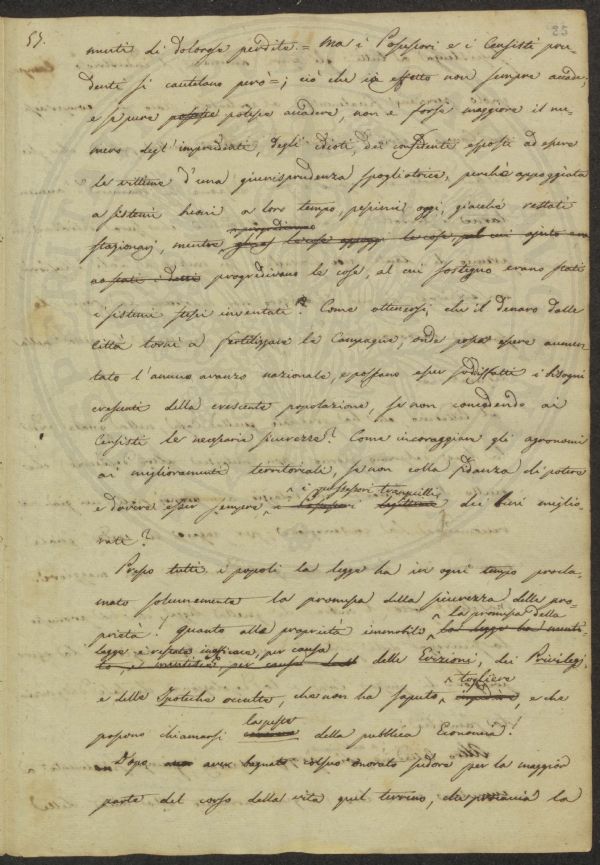 53.
85
menti di dolorose perdite = ma i Possessori e i Censisti pru-
denti si cautelano però =; ciò che in effetto non sempre accade;
e se pure potesse accadere, non è forse maggiore il nu-
mero degl'imprudenti, degli idioti, dei confidenti esposti ad essere
le vittime d'una giurisprudenza spogliatrice, perchè appoggiata
a sistemi buoni a loro tempo, pessimi oggi, giacchè restati
progredivano
stazionarj, mentre le cose
progredivano le cose, al cui sostegno erano stati
i sistemi stessi inventati? Come ottenersi, che il denaro dalle
Città torni a fertilizzare le Campagne, onde possa essere aumen-
tato l'annuo avanzo nazionale, e possano esser soddisfatti i bisogni
crescenti della crescente popolazione, se non concedendo ai
Censisti le necessarie sicurezze? Come incoraggiare gli agronomi
ai miglioramenti territoriali, se non colla fidanza di potere
i possessori tranquilli
e dovere esser sempre dei beni miglio-
rati?
Presso tutti i popoli la legge ha in ogni tempo procla-
mato solennemente la promessa della sicurezza delle pro-
prietà! Quanto alle proprietà immobili la promessa della
legge è restata inefficace, per causa
delle Evizioni, dei Privilegj,
togliere
e delle Ipoteche occulte, che non ha saputo e che
la peste
possono chiamarsi della pubblica Economia!
Dopo aver bagnato coll'onorato sudore per la maggior
parte del corso della vita quel terreno, che la